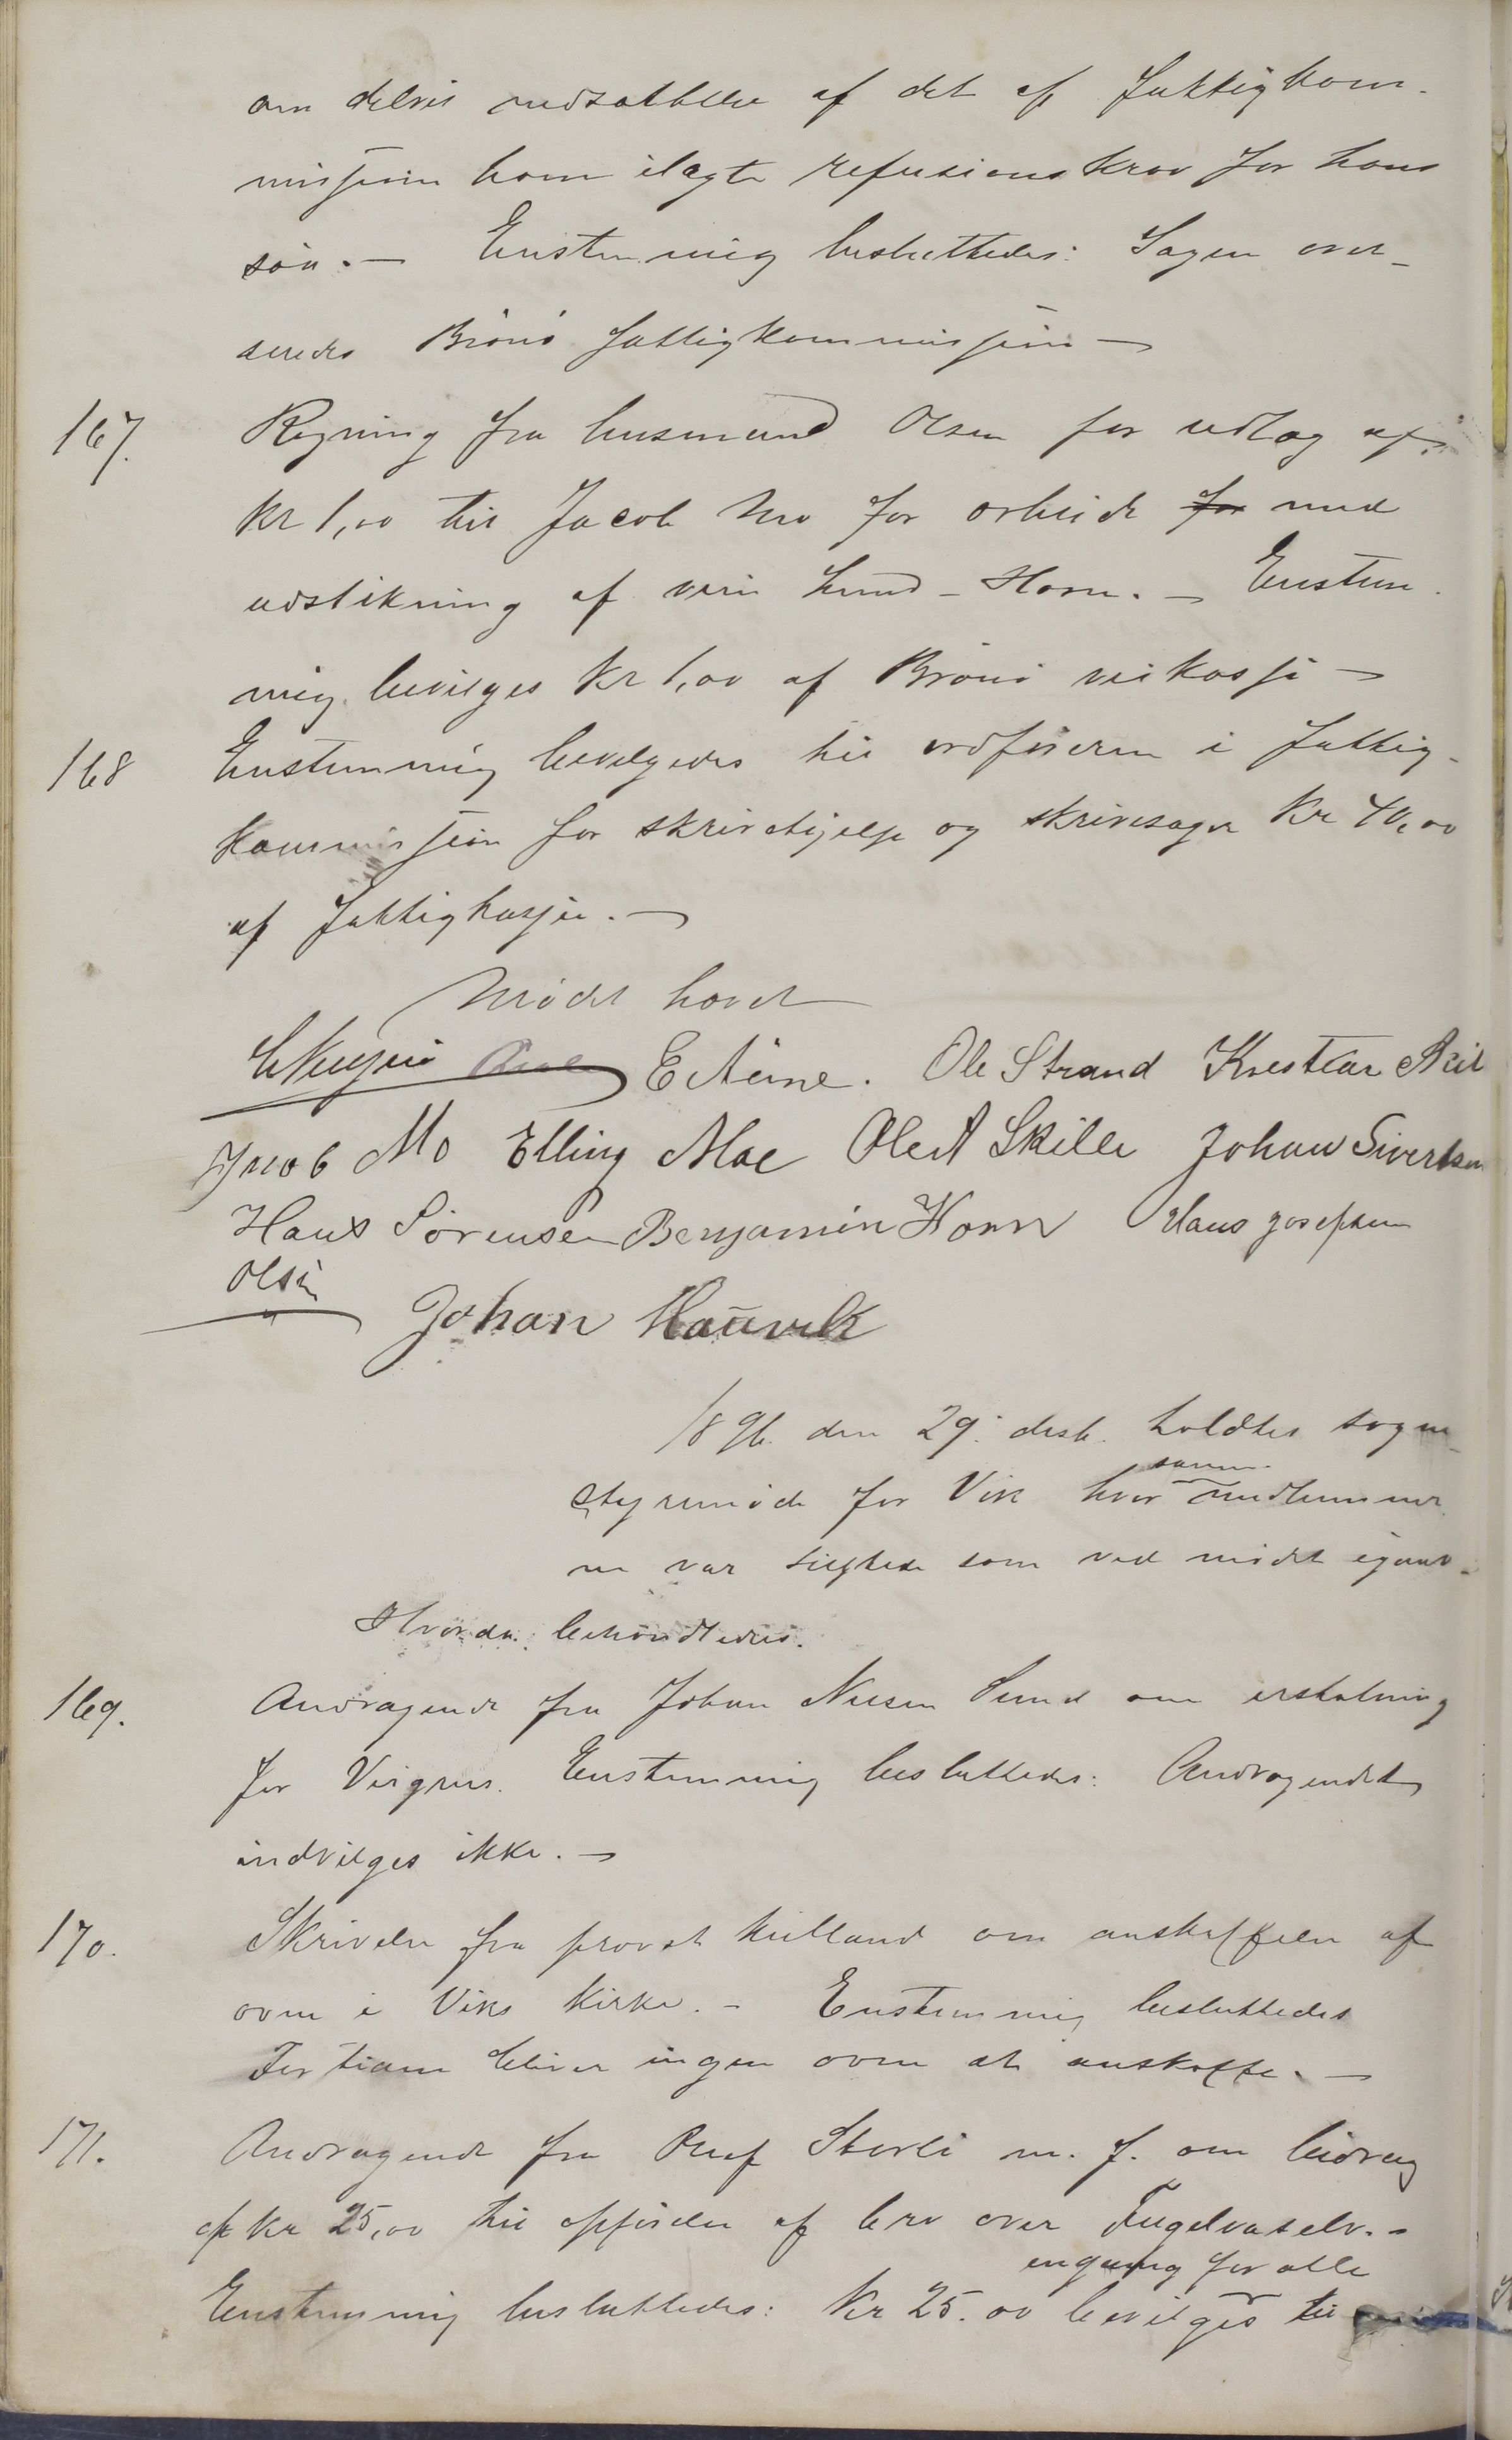 om delvis nedsættelse af det af fattigkom-
missionen ham ilagte refusionskrav for hans
søn. – Enstemmig besluttedes: Sagen over-
sendes Brönö fattigkommission –
167. Regning fra husmand Olsen for udlæg af
kr 1,00 til Jacob Mo for arbeide for med
udstikning af vein Lund – Horn. – Enstem-
mig bevilges kr 1,00 af Brönö veikasse –
168 Enstemmig bevilgedes til ordföreren i fattig-
kommissionen for skrivehjelp og skrivesager kr 40,00
af fattigkassen. –
Mödet hævet
E Aune. Ole Strand Krestian
Jacob Mo Elling Moe Ole A Skille Johan Sivertsen
Hans Sörensen Benjamin Horn Hans Josefsen
Olsen Johan Haūvik
1896 den 29. desb. holdtes sogne-
styremöde for Vik hvor samme medlemmer
var tilstede som ved mödet igaar.
Hvorda behandledes.
169. Andragende fra Johan Nilsen Sund om erstatning
for Veigrus. Enstemmig besluttedes: Andragendet
indvilges ikke. –
170. Skrivelse fra provst Kielland om anskaffelse af
ovn i Viks kirke. – Enstemmig besluttedes
For tiden bliver ingen ovn at anskaffe. –
171. Andragende fra Oluf Storli m. fl. om bidrag
af kr 25,00 til opförelse af bro over Fugelvaselv. –
engang for alle
Enstemmig besluttedes: Kr 25.00 bevilges til